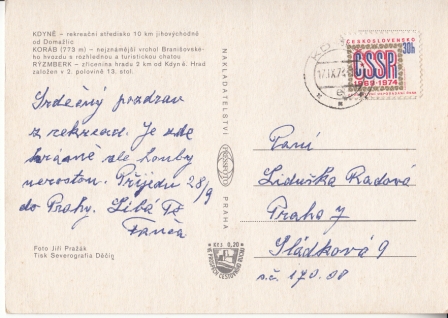 KDYNĚ – rekreační středisko 10 km jihovýchodně
od Domažlic
KORÁB (773 m) – nejznámější vrchol Branišovské-
ho hvozdu s rozhlednou a turistickou chatou
RÝZMBERK – zřícenina hradu 2 km od Kdyně. Hrad
založen v 2. polovině 13. stol.
Srdečný pozdrav
z rekreace. Je zde
krásně ale houby
nerostou. Přijedu 28/9
do Prahy. Líbá Tě
Foto Jiří Pražák
Tisk Severografia Děčín
NAKLADATELSTVÍ
PRESSFOTO
PRAHA
Kčs 0,20
ČESKOSLOVENSKO
30h
ČSSR
1969-1974
Paní
Liduška Radová
Praha 7
Sládková 9